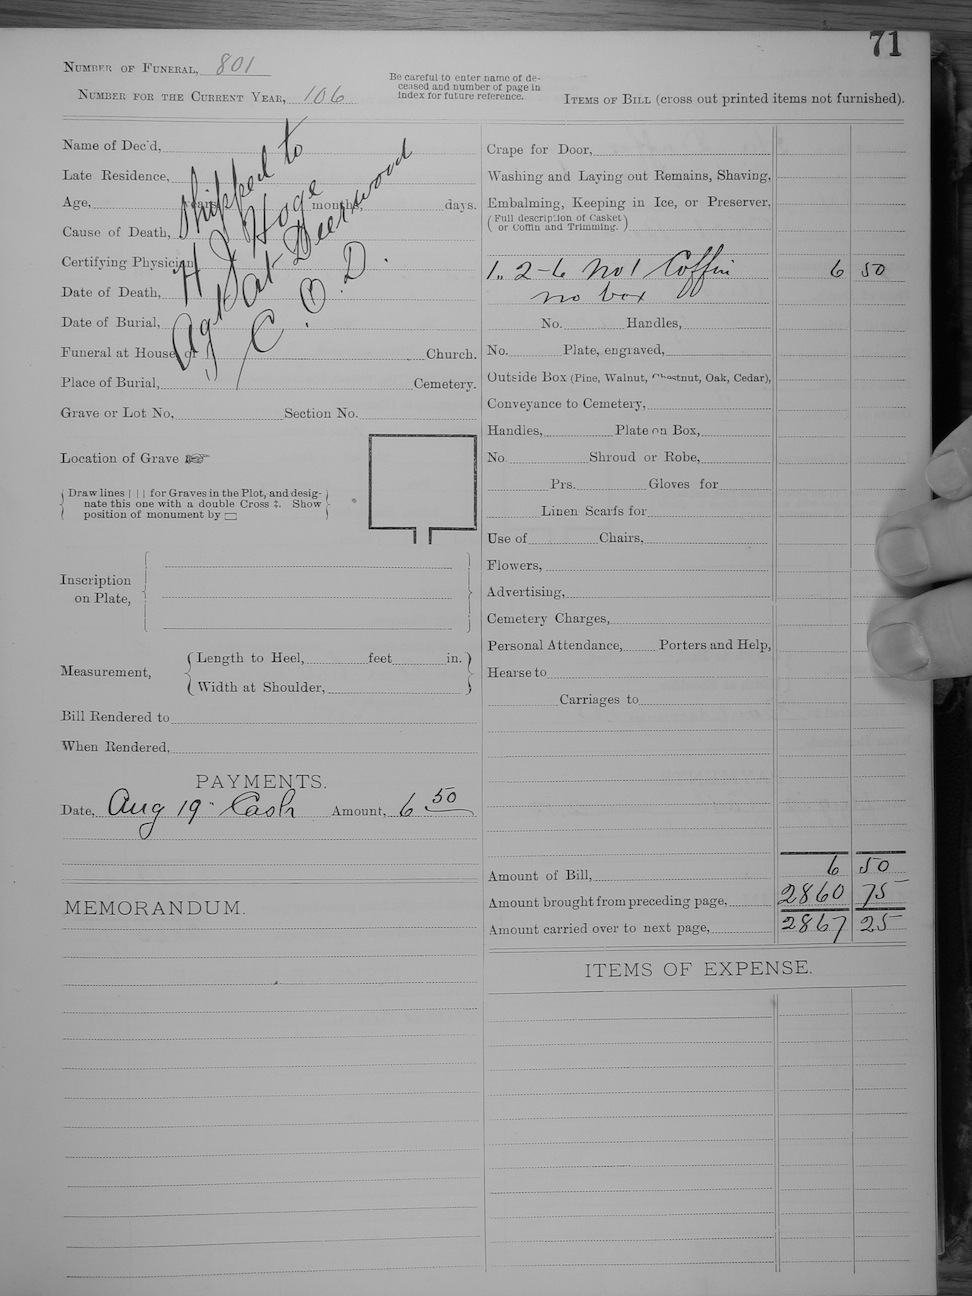 71
NUMBER OF FUNERAL, 801
NUMBER FOR THE CURRENT YEAR, 106
Be careful to enter name of de-
ceased and number of page in
index for future reference.
ITEMS OF BILL (cross out printed items not furnished).
Name of Dec'd,
Late Residence,
Age, years, months, days.
Cause of Death,
Certifying Physician
Date of Death,
Date of Burial,
Funeral at House or Church.
Place of Burial, Cemetery.
Shipped to
H J Hoge
Agt at Deerwood
C.O.D.
Grave or Lot No, Section No.
Location of Grave ☞
Draw lines | | | for Graves in the Plot, and desig-
nate this one with a double Cross ‡. Show
position of monument by ▭
Inscription
on Plate,
Measurement,
Length to Heel, feet in.
Width at Shoulder,
Bill Rendered to
When Rendered,
PAYMENTS.
Date, Aug 19 Cash Amount, 6 50
MEMORANDUM.
Crape for Door,
Washing and Laying out Remains, Shaving,
Embalming, Keeping in Ice, or Preserver,
(Full description of Casket
or Coffin and Trimming.)
1, 2-6 No 1 Coffin 6 50
no box
No. Handles,
No. Plate, engraved,
Outside Box (Pine, Walnut, Chestnut, Oak, Cedar),
Conveyance to Cemetery,
Handles, Plate on Box,
No. Shroud or Robe,
Prs. Gloves for
Linen Scarfs for
Use of Chairs,
Flowers,
Advertising,
Cemetery Charges,
Personal Attendance, Porters and Help,
Hearse to
Carriages to
Amount of Bill, 6 50
Amount brought from preceding page, 2860 75
Amount carried over to next page, 2867 25
ITEMS OF EXPENSE.